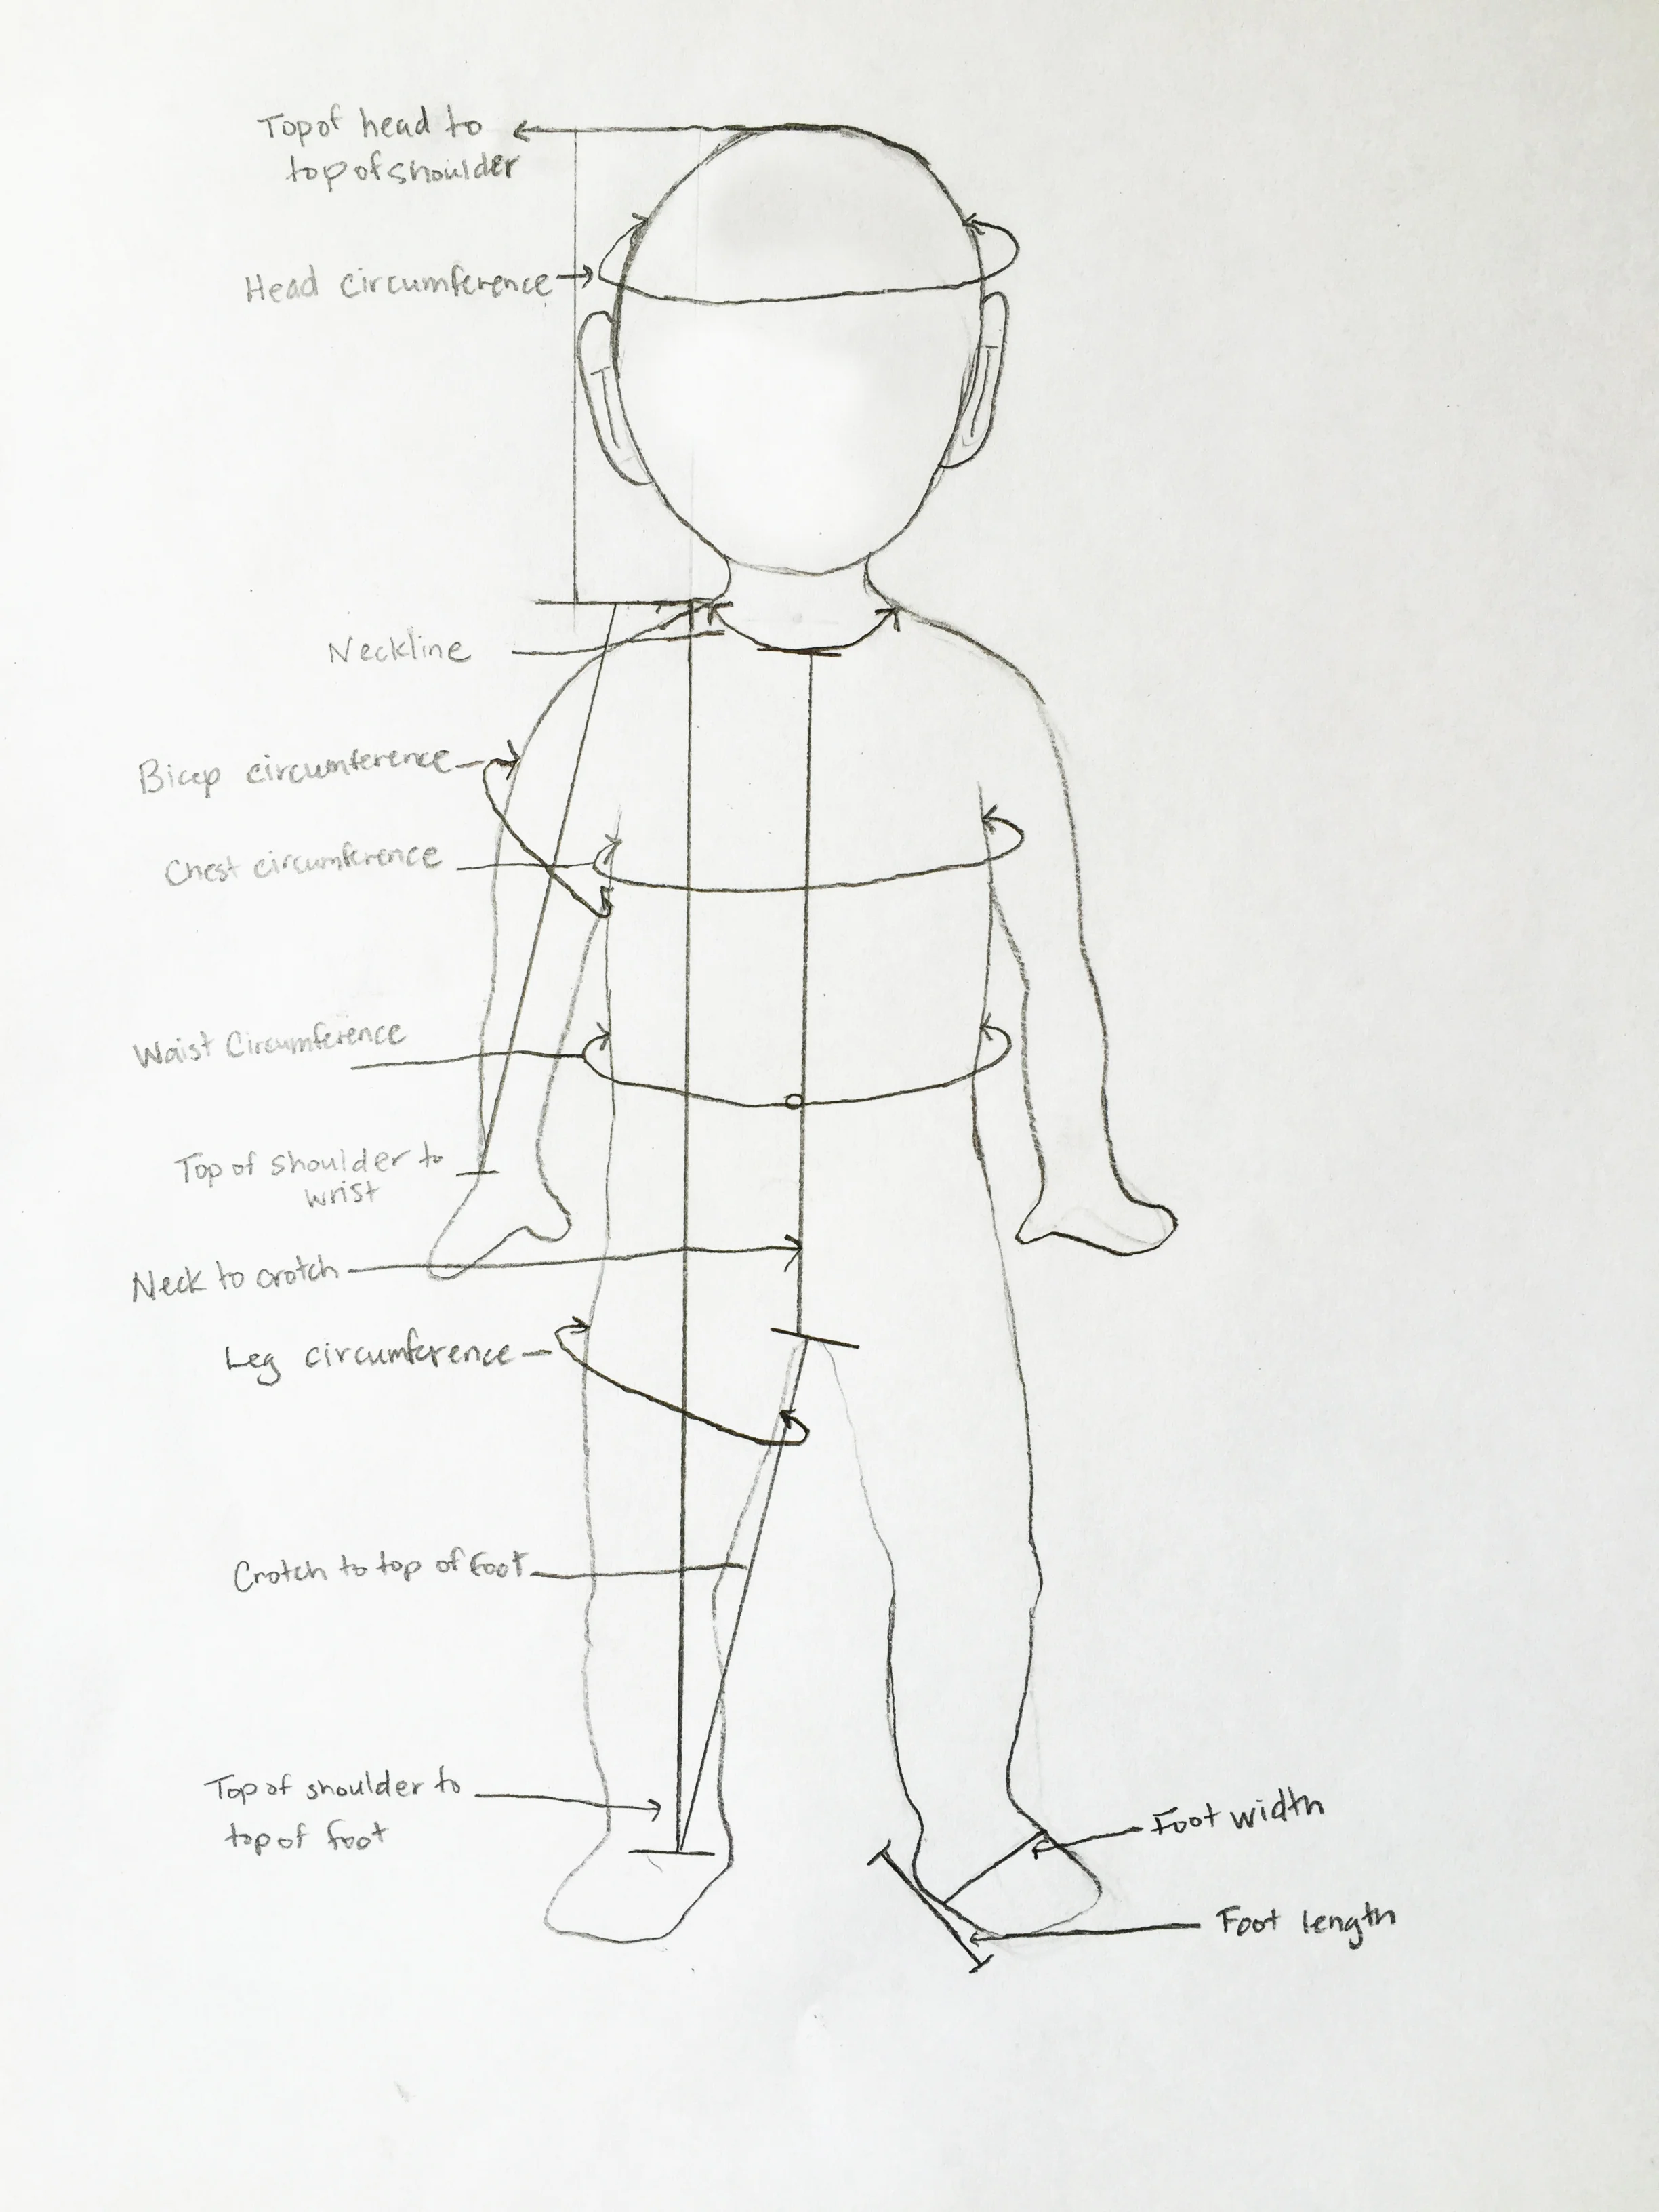 Top of head to
top of shoulder
Head circumference
Neckline
Bicep circumference
Chest circumference
Waist Circumference
Top of shoulder to
wrist
Neck to crotch
Leg circumference
Crotch to top of foot
Top of shoulder to
top of foot
Foot width
Foot length